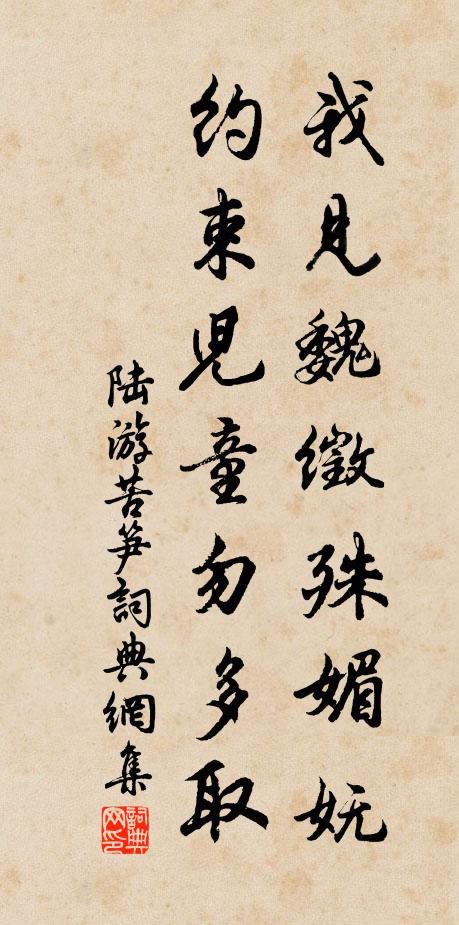 我見魏徵殊媚妩
約束兒童勿多取
陸游苦笋詞典網集
詞典网印